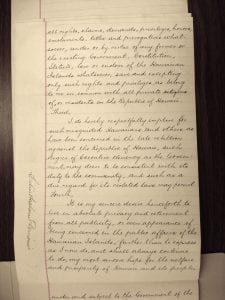 all rights, claims, demands, privileges, honors,
emoluments, titles and prerogatives what-
soever, under or by virtue of any former or
the existing Government, Constitution,
Statute, law or custom of the Hawaiian
Islands whatsoever, save and excepting
only such rights and privileges as belong
to me in common with all private citizens
of, or residents in the Republic of Hawaii.
Third.
I do hereby respectfully implore for
such misguided Hawaiians and others as
have been concerned in the late rebellion
against the Republic of Hawaii, such
degree of Executive clemency as the Govern-
ment may deem to be consistent with its
duty to the community, and such as a
due regard for its violated laws may permit
Fourth.
It is my sincere desire henceforth to
live in absolute privacy and retirement
from all publicity, or even appearance of
being concerned in the public affairs of the
Hawaiian Islands, further than to express
as I now do and shall always continue
to do, my most hope for the welfare
and prosperity of Hawaii and its people
under and subject to the Government of the
Dominis